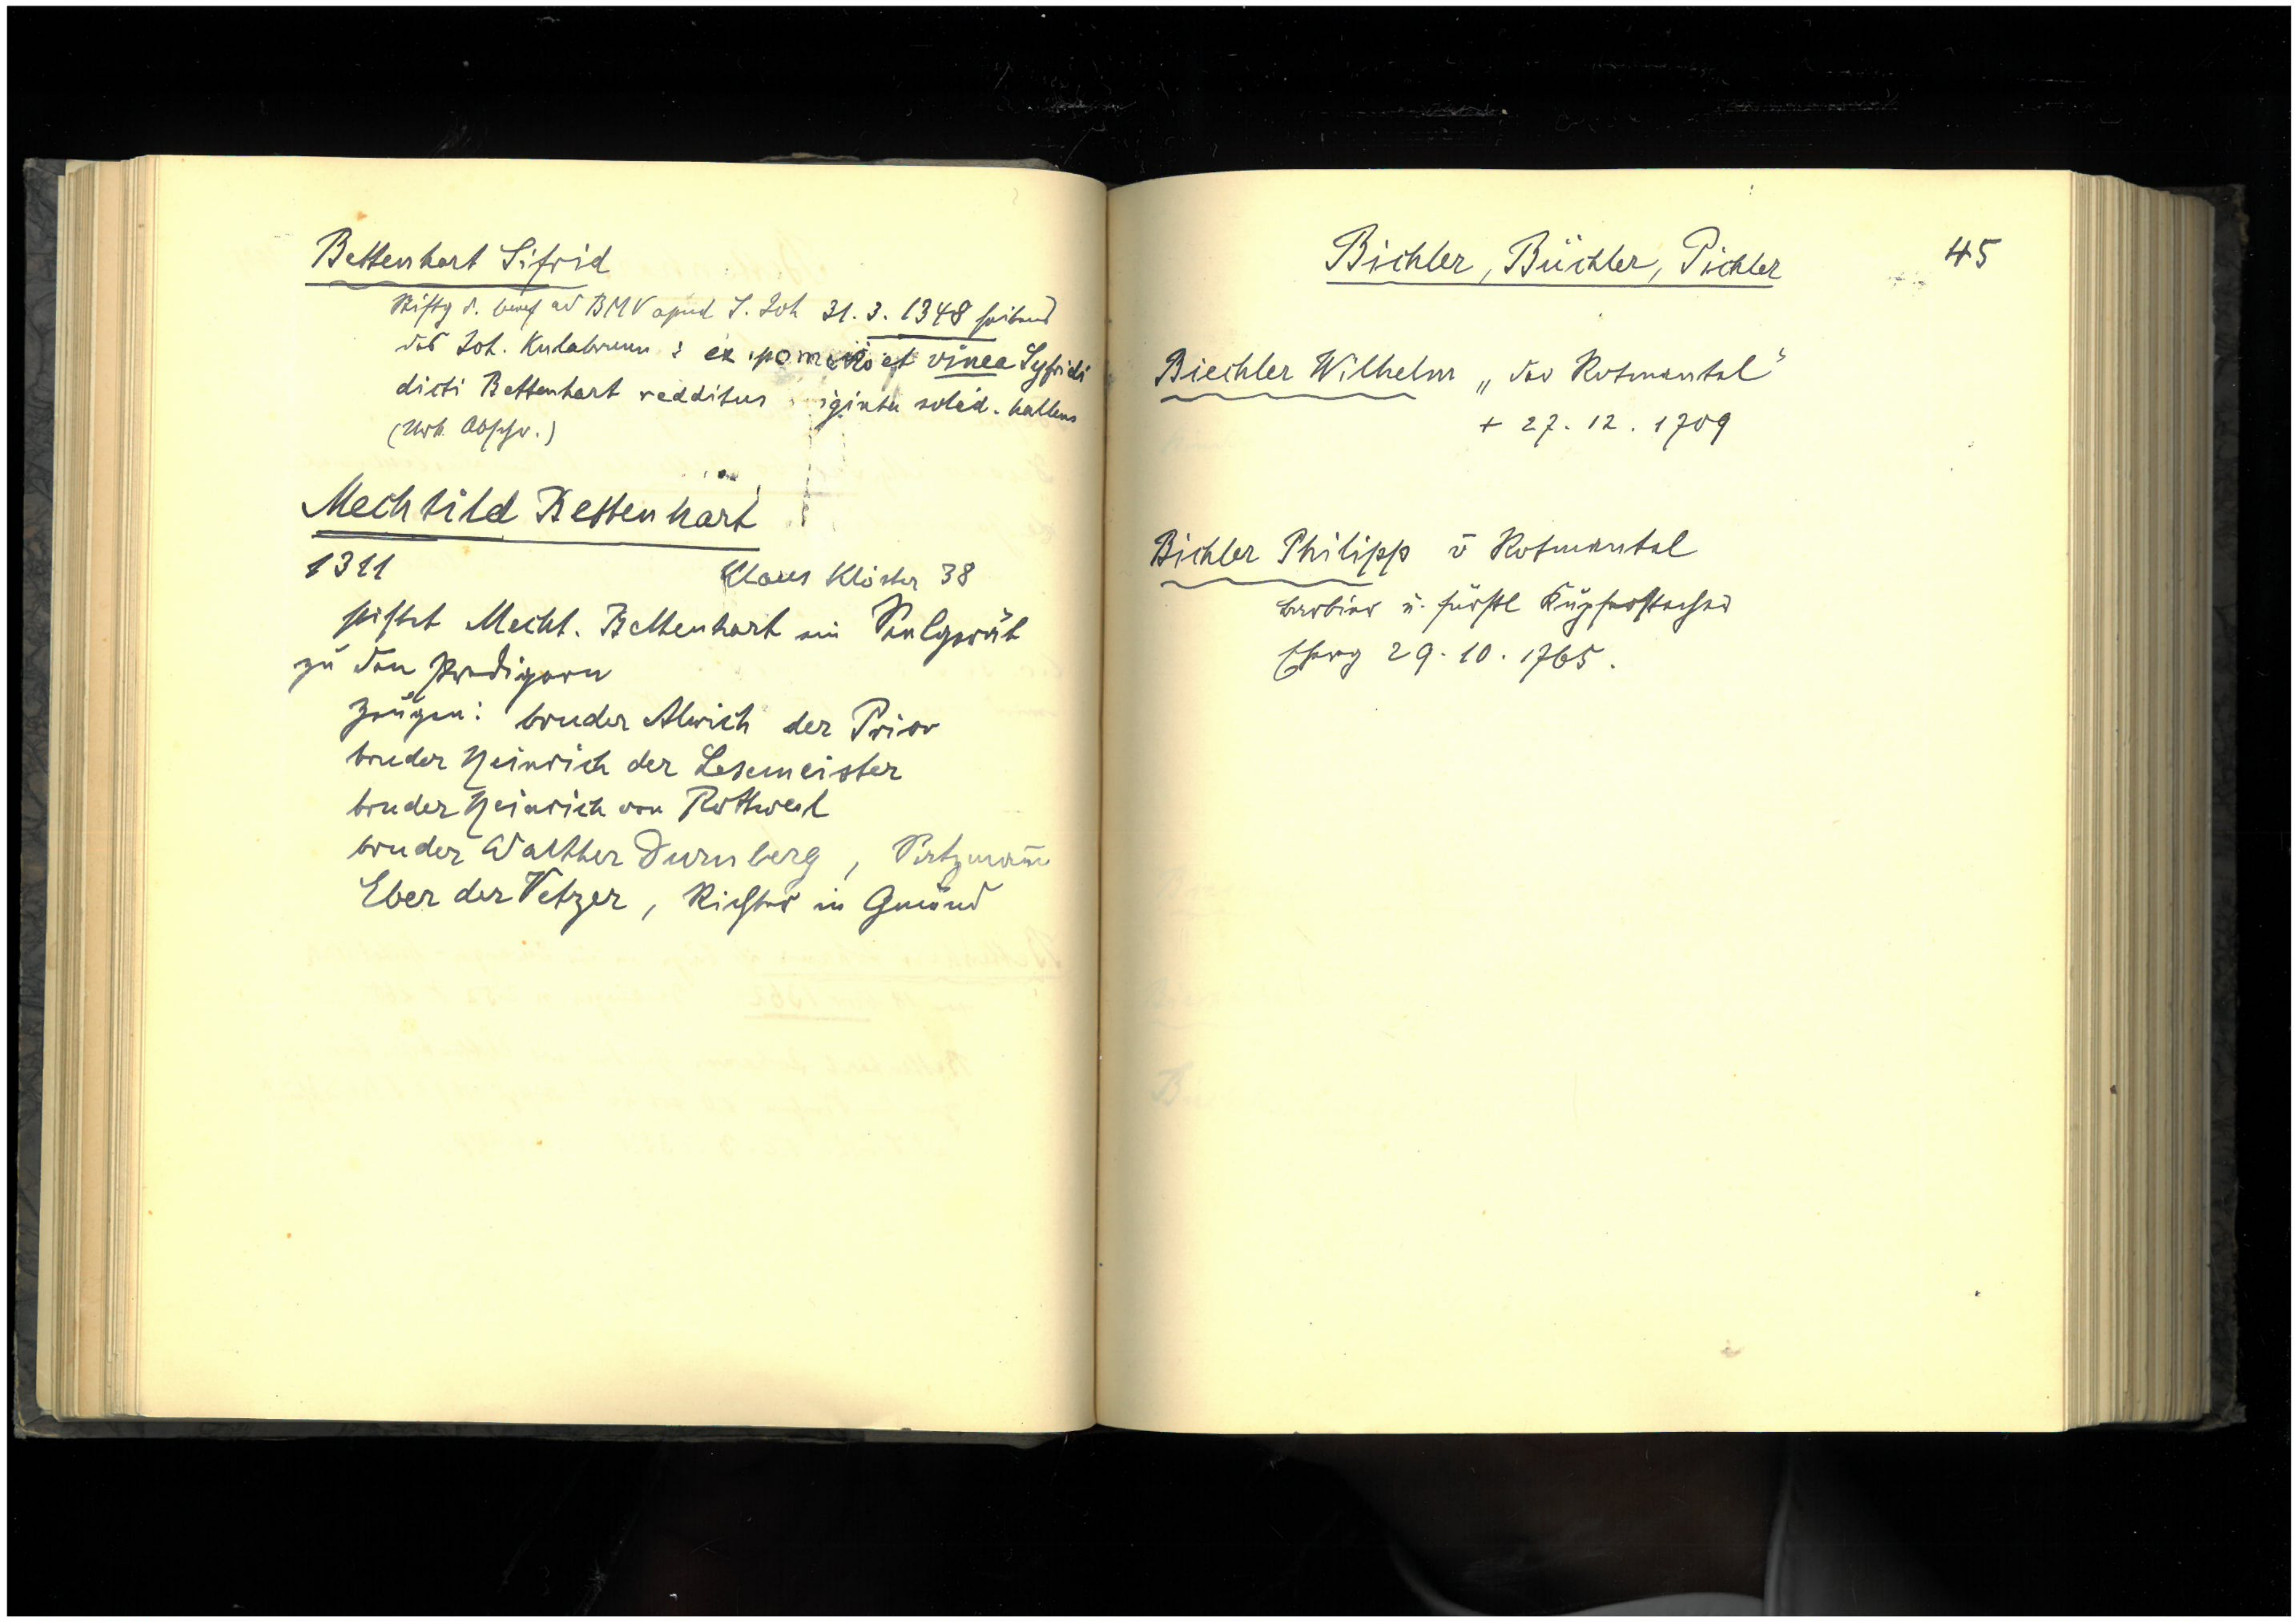 Bettenhart Sifrid
Stiftg d. benef ad BMV apud S. Joh 31. 3. 1348 seitens
des Joh. Kulabrunn : ex pomerio et vinea Syfridi
dicti Bettenhart redditus viginti solid. hallens
(Urk. Abschr.)
Mechtild Bettenhart
1311 Klaus Klöster 38
stiftet Mecht. Bettenhart ein Seelgerät
zu den Predigern
Zeugen: bruder Alwich der Prior
bruder Heinrich der Lesemeister
bruder Heinrich von Rottweil
bruder Walther Durnberg,
Eber der Vetzer, Richter in Gmünd
Bichler, Büchler, Pichler
45
Biechler Wilhelm „der Rotmantel“
+ 27. 12. 1709
Bichler Philipp v Rotmantel
barbier u. fürstl Kupferstecher
29. 10. 1765.